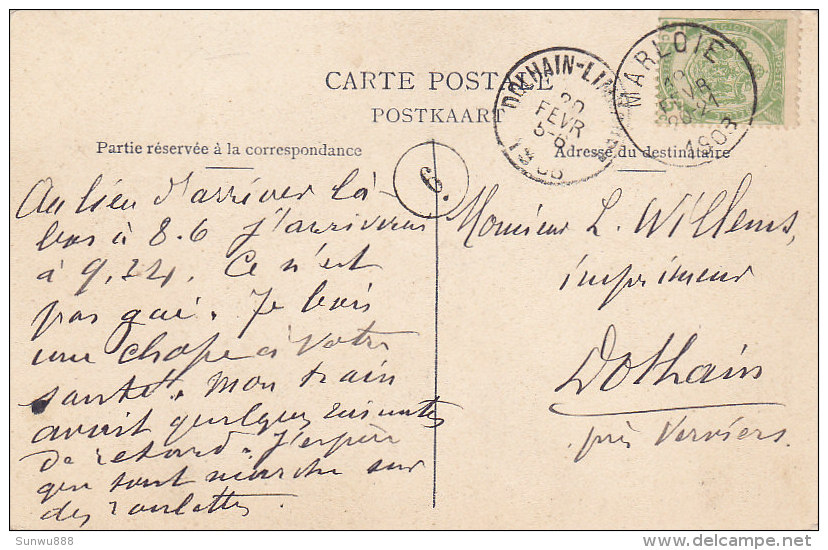 CARTE POSTALE
POSTKAART
Partie réservée à la correspondance
Adresse du destinataire
MARLOIE
FEVR
1903
DOLHAIN-LI
20
FEVR
5-6
6.
Au lieu d'arriver là
bas à 8.6 J'arriverai
à 9,24. Ce n'est
pas gai. Je bois
une chope à Votre
santé. Mon train
avait quelques minutes
de retard. J'espère
que tout marche sur
des roulettes
Monsieur L. Willems,
imprimeur
Dolhain
près Verviers.
Sunwu888
delcampe.net